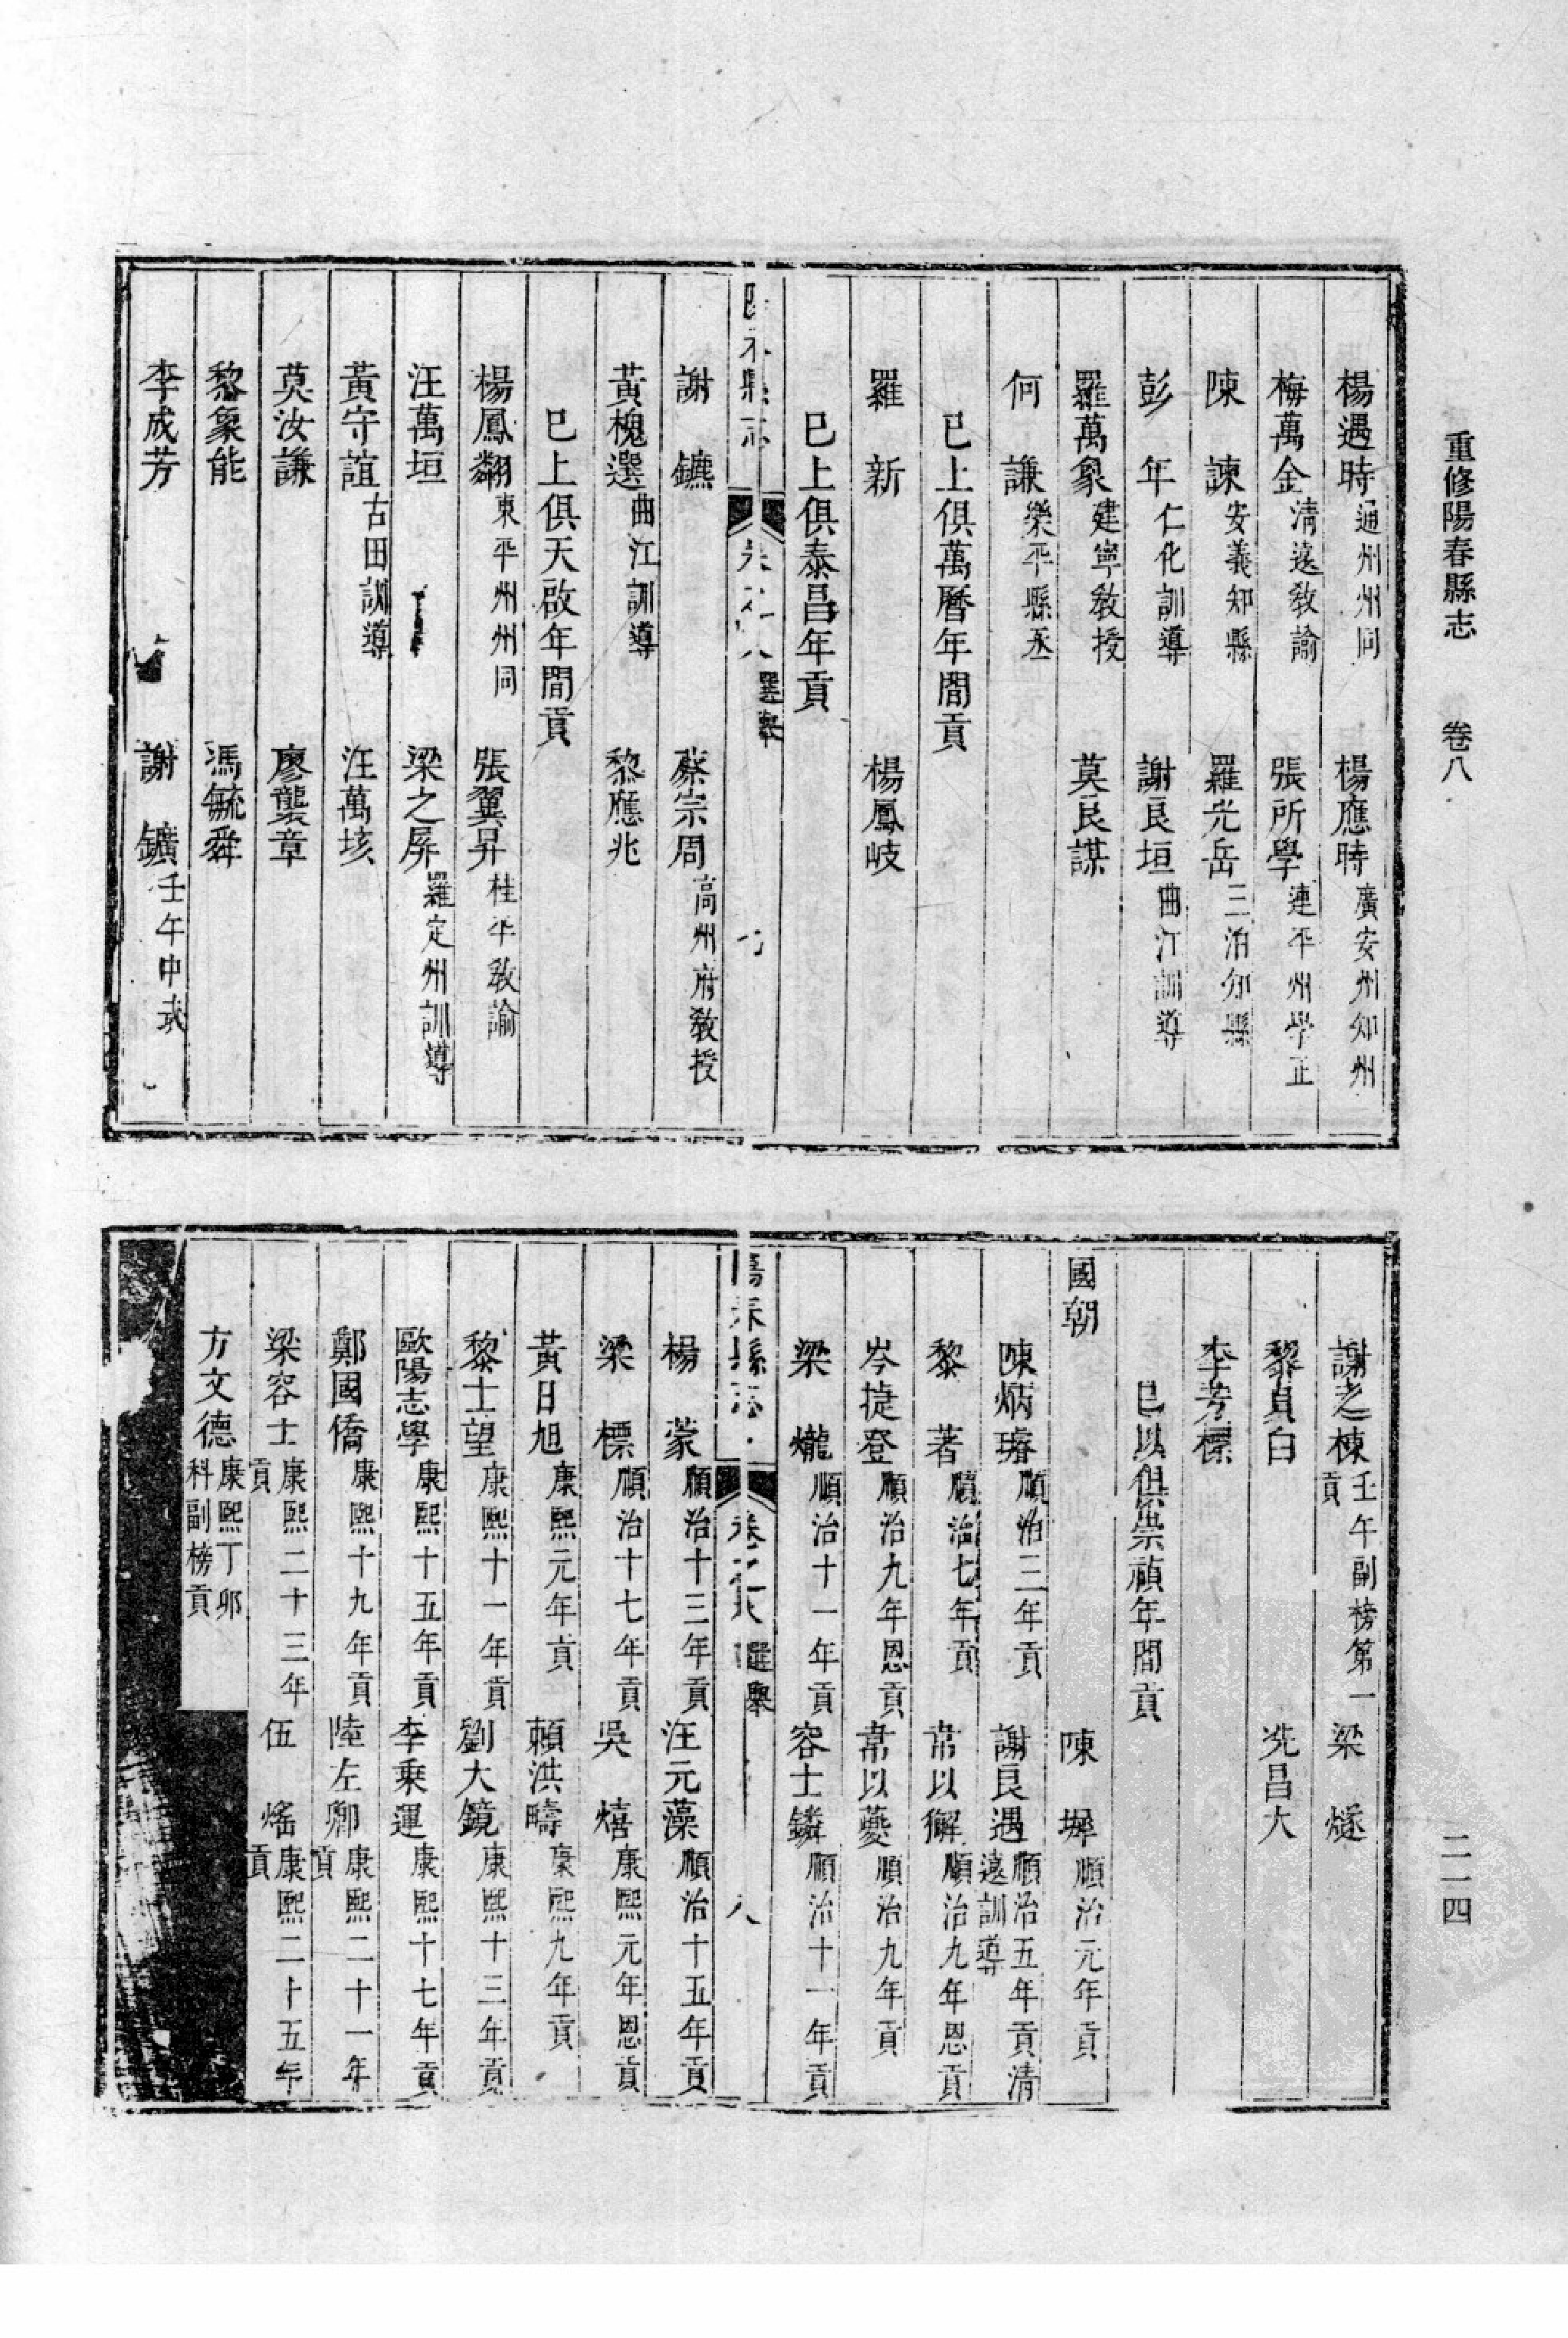 重修陽春縣志 卷八 二一四
楊遇時通州州同 楊應時廣安州知州
梅萬金清遠教諭 張所學連平州學正
陳諫安義知縣 羅光岳三泊知縣
彭年仁化訓導 謝良垣曲江訓導
羅萬象建寧教授 莫良謀
何謙樂平縣丞
已上俱萬曆年間貢
羅新 楊鳳岐
已上俱泰昌年貢
縣志 卷之八 選舉 七
謝鑣 蔡宗周高州府教授
黃槐選曲江訓導 黎應兆
已上俱天啟年間貢
楊鳳翱東平州州同 張翼昇桂平教諭
汪萬垣 梁之屏羅定州訓導
黃守誼古田訓導 汪萬垓
莫汝謙 廖襲章
黎象能 馮毓舜
李成芳 謝鑛壬午中式
謝之棟壬午副榜第一貢 梁燧
黎貞白 冼昌大
李芳標
已以俱崇禎年間貢
國朝 陳墀順治元年貢
陳炳璿順治三年貢 謝良遇順治五年貢清遠訓導
黎著順治七年貢 常以獬順治九年恩貢
岑捷登順治九年恩貢 常以夔順治九年貢
梁爖順治十一年貢 容士鏻順治十一年貢
陽春縣志 卷之八 選舉 八
楊蒙順治十三年貢 汪元藻順治十五年貢
梁標順治十七年貢 吳熺康熙元年恩貢
黃日旭康熙元年貢 賴洪疇康熙九年貢
黎士望康熙十一年貢 劉大鏡康熙十三年貢
歐陽志學康熙十五年貢 李乗運康熙十七年貢
鄭國僑康熙十九年貢 陸左卿康熙二十一年貢
梁容士康熙二十三年貢 伍熎康熙二十五年貢
方文德康熙丁卯科副榜貢